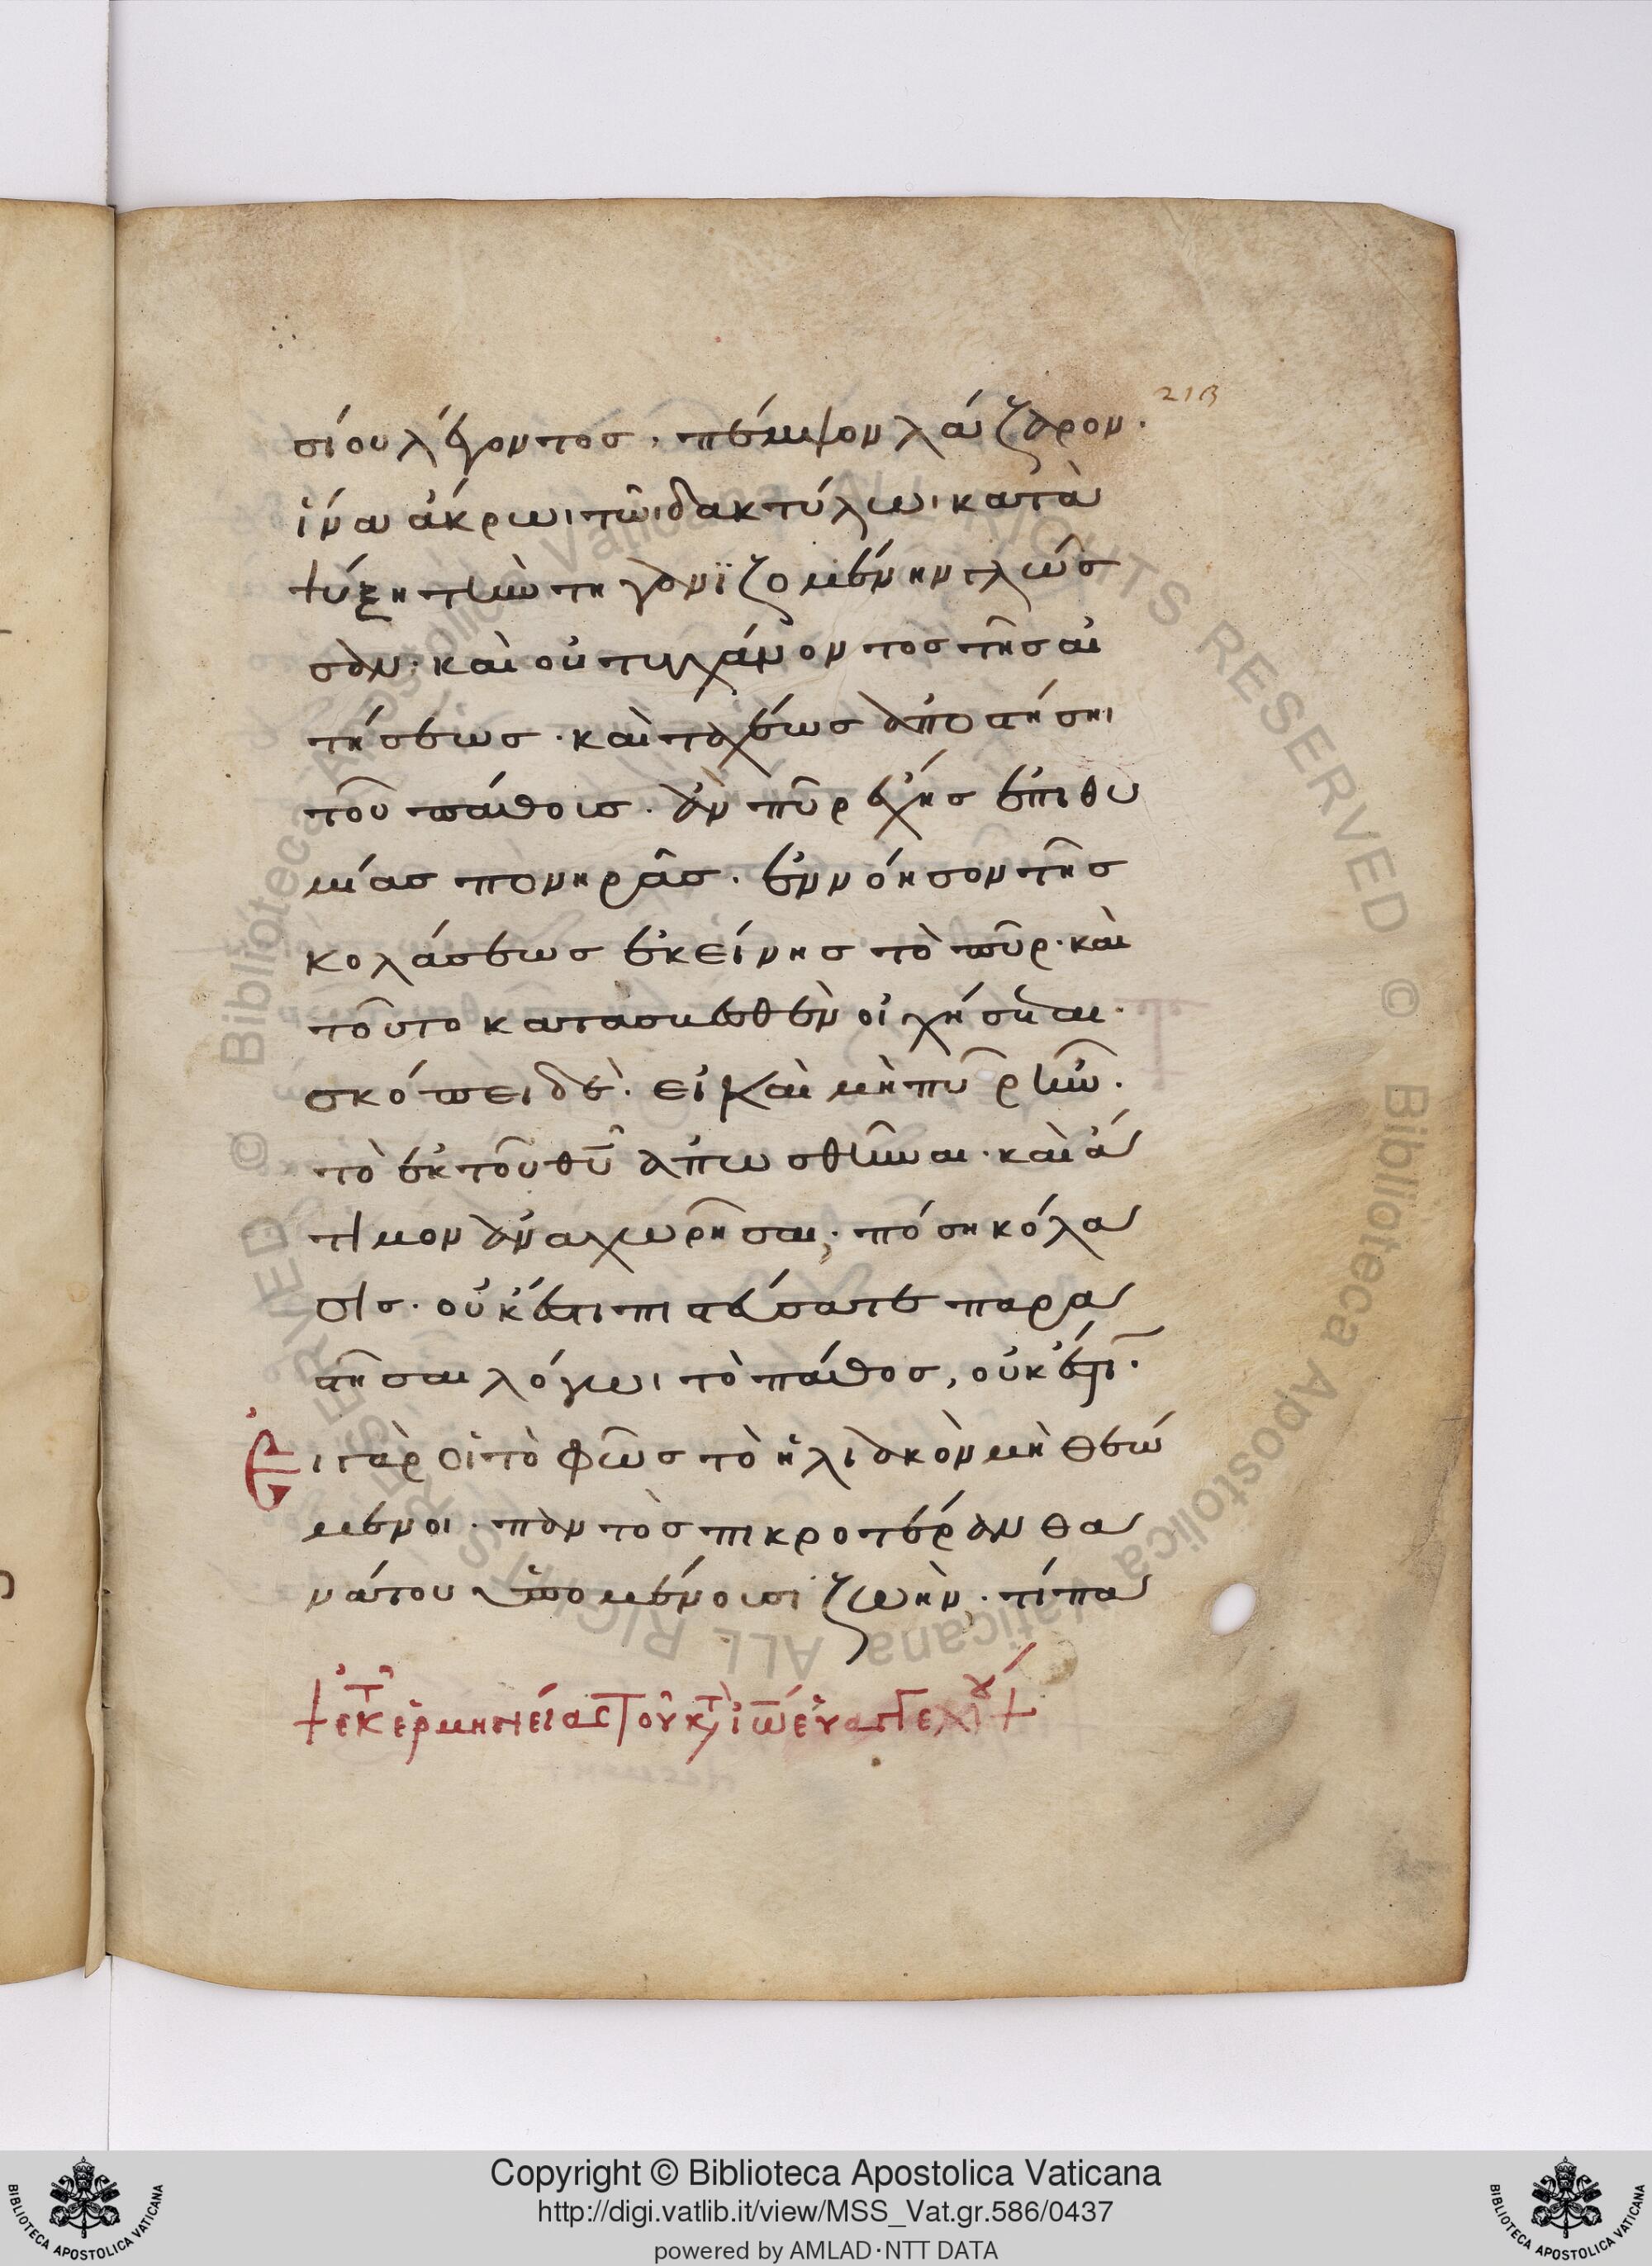 213
σίου λέγοντος, πέμψον λάζαρον·
ἵνα ἄκρωι τῶι δακτύλωι κατα
ψύξη τὴν τηγανϊζομένην γλῶσ
σαν· καὶ οὐ τυγχάνοντος τῆς αἰ
τήσεως· καὶ ταχέως ἀποστήσηι
τοῦ πάθους· ἂν πῦρ ἔχης ἐπιθυ
μίας πονηρᾶς· ἐννόησον τῆς
κολάσεως ἐκείνης τὸ πῦρ· καὶ
τοῦτο κατασκεσθὲν οἰχήσεται·
σκόπει δὲ· εἰ καὶ μὴ πῦρ ἦν·
τὸ ἐκ τοῦ θῦ ἀπωσθῆναι· καὶ ἄ
τιμον ἀναχωρῆσαι· πόση κόλα
σις· οὐκ ἔστι πιστεύσατε παρα
στῆσαι λόγωι τὸ πάθος, οὐκ ἔστι·
Εἰ γὰρ οἱ τὸ φῶς τὸ ἡλιακὸν μὴ θεώ
μενοι· παντὸς πικροτέραν θα
νάτου ὑπομένουσι ζωὴν· τί πα
+ ἐκ τ ἑρμηνείας τοῦ κτ ἰω εὐαγγελίου +
Copyright © Biblioteca Apostolica Vaticana
http://digi.vatlib.it/view/MSS_Vat.gr.586/0437
powered by AMLAD·NTT DATA
BIBLIOTECA APOSTOLICA VATICANA
BIBLIOTECA APOSTOLICA VATICANA
© Biblioteca Apostolica Vaticana ALL RIGHTS RESERVED © Biblioteca Apostolica Vaticana ALL RIGHTS RESERVED